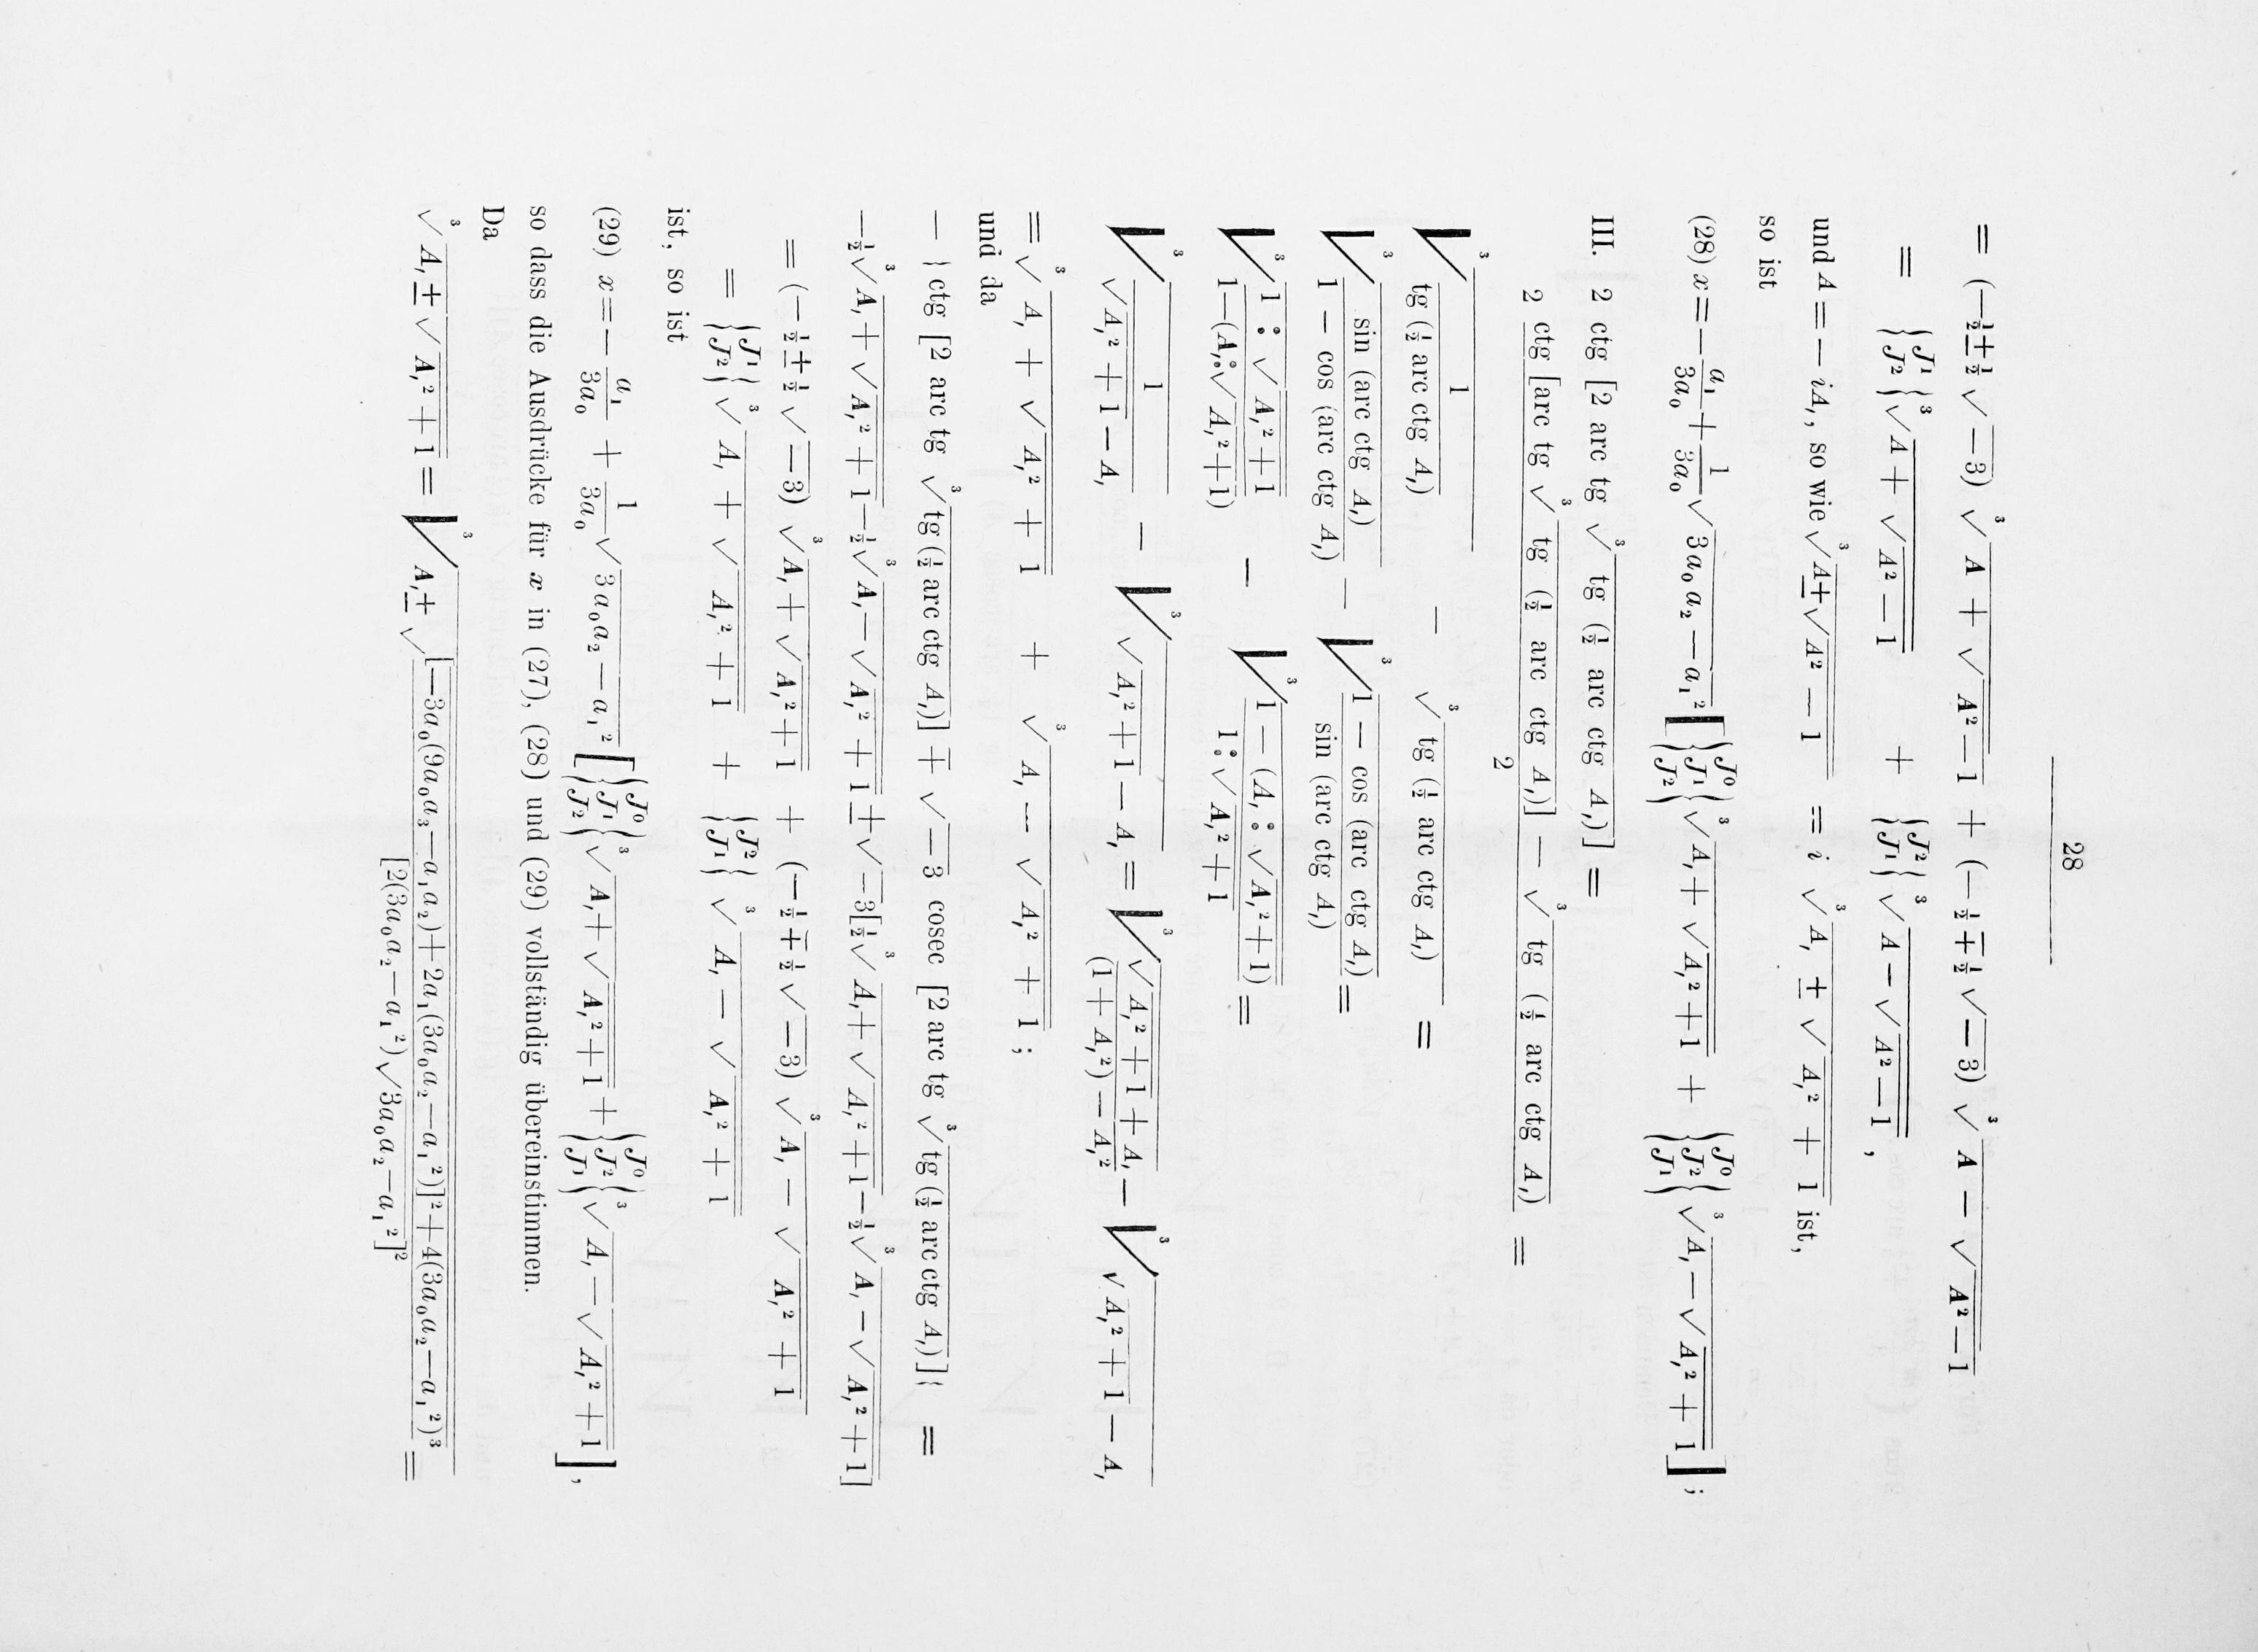 28
= (−½ ± ½ √−3) ∛(A + √(A²−1)) + (−½ ∓ ½ √−3) ∛(A − √(A²−1))
= {J¹ J²} ∛(A + √(A²−1)) + {J² J¹} ∛(A − √(A²−1)) ,
und A = − iA,, so wie ∛(A ± √(A²−1)) = i ∛(A, ± √(A,²+1)) ist,
so ist
(28) x = − a₁/3a₀ + 1/3a₀ √(3a₀a₂ − a₁²) [ {J⁰ J¹ J²} ∛(A, + √(A,²+1)) + {J⁰ J² J¹} ∛(A, − √(A,²+1)) ] ;
III. 2 ctg [2 arc tg ∛(tg (½ arc ctg A,))] =
2 ctg [arc tg ∛(tg (½ arc ctg A,))] − ∛(tg (½ arc ctg A,)) / 2 =
∛(1 / tg (½ arc ctg A,)) − ∛(tg (½ arc ctg A,)) =
∛(sin (arc ctg A,) / 1 − cos (arc ctg A,)) − ∛(1 − cos (arc ctg A,) / sin (arc ctg A,)) =
∛(1 : √(A,²+1) / 1−(A, : √(A,²+1))) − ∛(1 − (A, : √(A,²+1)) / 1 : √(A,²+1)) =
∛(1 / √(A,²+1) − A,) − ∛(√(A,²+1) − A,) = ∛(√(A,²+1) + A, / (1 + A,²) − A,²) − ∛(√(A,²+1) − A,)
= ∛(A, + √(A,²+1)) + ∛(A, − √(A,²+1)) ;
und da
− { ctg [2 arc tg ∛(tg (½ arc ctg A,))] ∓ √−3 cosec [2 arc tg ∛(tg (½ arc ctg A,))] } =
−½ ∛(A, + √(A,²+1)) − ½ ∛(A, − √(A,²+1)) ± √−3 [½ ∛(A, + √(A,²+1)) − ½ ∛(A, − √(A,²+1))]
= (−½ ± ½ √−3) ∛(A, + √(A,²+1)) + (−½ ∓ ½ √−3) ∛(A, − √(A,²+1))
= {J¹ J²} ∛(A, + √(A,²+1)) + {J² J¹} ∛(A, − √(A,²+1))
ist, so ist
(29) x = − a₁/3a₀ + 1/3a₀ √(3a₀a₂ − a₁²) [ {J⁰ J¹ J²} ∛(A, + √(A,²+1)) + {J⁰ J² J¹} ∛(A, − √(A,²+1)) ] ,
so dass die Ausdrücke für x in (27), (28) und (29) vollständig übereinstimmen.
Da
∛(A, ± √(A,²+1)) = ∛(A, ± √([−3a₀(9a₀a₃−a₁a₂)+2a₁(3a₀a₂−a₁²)]²+4(3a₀a₂−a₁²)³ / [2(3a₀a₂−a₁²)√(3a₀a₂−a₁²)]²)) =